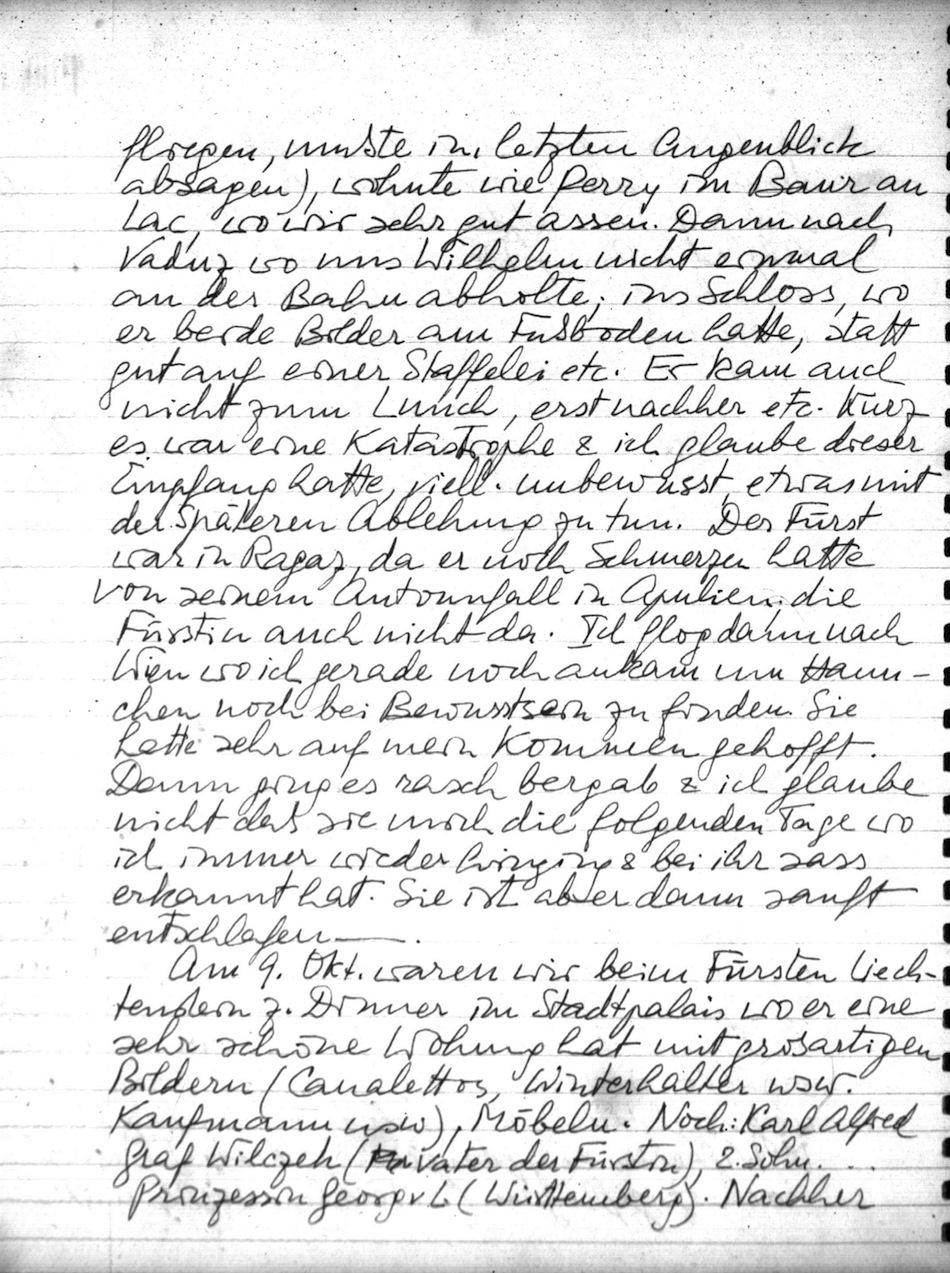 fliegen, musste im letzten Augenblick
absagen), wohnte wie Perry im Baur au
Lac, wo wir sehr gut assen. Dann nach
Vaduz wo uns Wilhelm nicht einmal
an der Bahn abholte, ins Schloss, wo
er beide Bilder am Fußboden hatte, statt
gut auf einer Staffelei etc. Er kam auch
nicht zum Lunch, erst nachher etc. Kurz
es war eine Katastrophe & ich glaube dieser
Empfang hatte, viell. unbewusst, etwas mit
der späteren Ablehung zu tun. Der Fürst
war in Ragaz, da er noch Schmerzen hatte
von seinem Autounfall in Apulien, die
Fürstin auch nicht da. Ich flog dann nach
Wien wo ich gerade noch ankam um Hann-
chen noch bei Bewusstsein zu finden. Sie
hatte sehr auf mein Kommen gehofft.
Dann ging es rasch bergab & ich glaube
nicht daß sie mich die folgenden Tage wo
ich immer wieder hinging & bei ihr sass
erkannt hat. Sie ist aber dann sanft
entschlafen —.
Am 9. Okt. waren wir beim Fürsten Liech-
tenstein z. Dinner im Stadtpalais wo er eine
sehr schöne Wohnung hat mit grosartigen
Bildern (Canalettos, Winterhalter usw.
Kaufmann usw), Möbeln. Noch: Karl Alfred
Graf Wilczek (vater der Fürstin), 2. Sohn. . .
Prinzessin Georg v L (Württemberg). Nachher